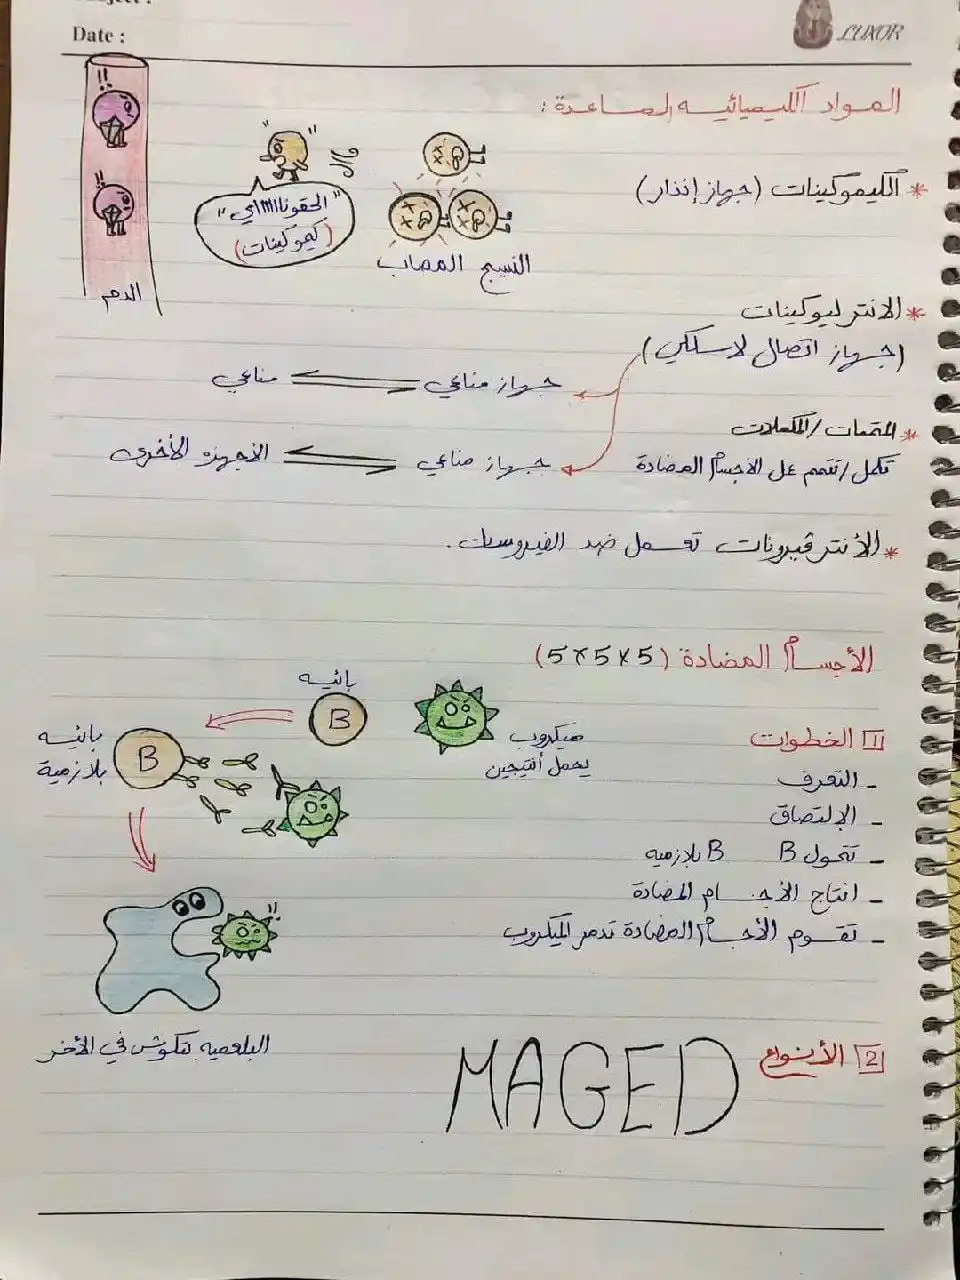 Date :
LUXOR
المواد الكيميائيه المساعدة :
* الكيموكينات (جهاز إنذار)
"الحقونااااااي"
(كيموكينات)
النسيج المصاب
الدم
* الانترليوكينات
(جهاز اتصال لاسلكي)
جهاز مناعي مناعي
جهاز مناعي الأجهزه الأخرى
* المتممات/المكملات
تكمل/تتمم عمل الأجسام المضادة
* الأنترفيرونات تعمل ضد الفيروسات.
الأجسام المضادة (5×5×5)
1 الخطوات
- التعرف
- الإلتصاق
- تتحول B B بلازميه
- انتاج الأجسام المضادة
- تقوم الأجسام المضادة تدمر الميكروب
ميكروب
يحمل أنتيجين
بائيه
B
بائيه
بلازمية
B
البلعميه تكوش في الأخر
2 الأنواع
MAGED